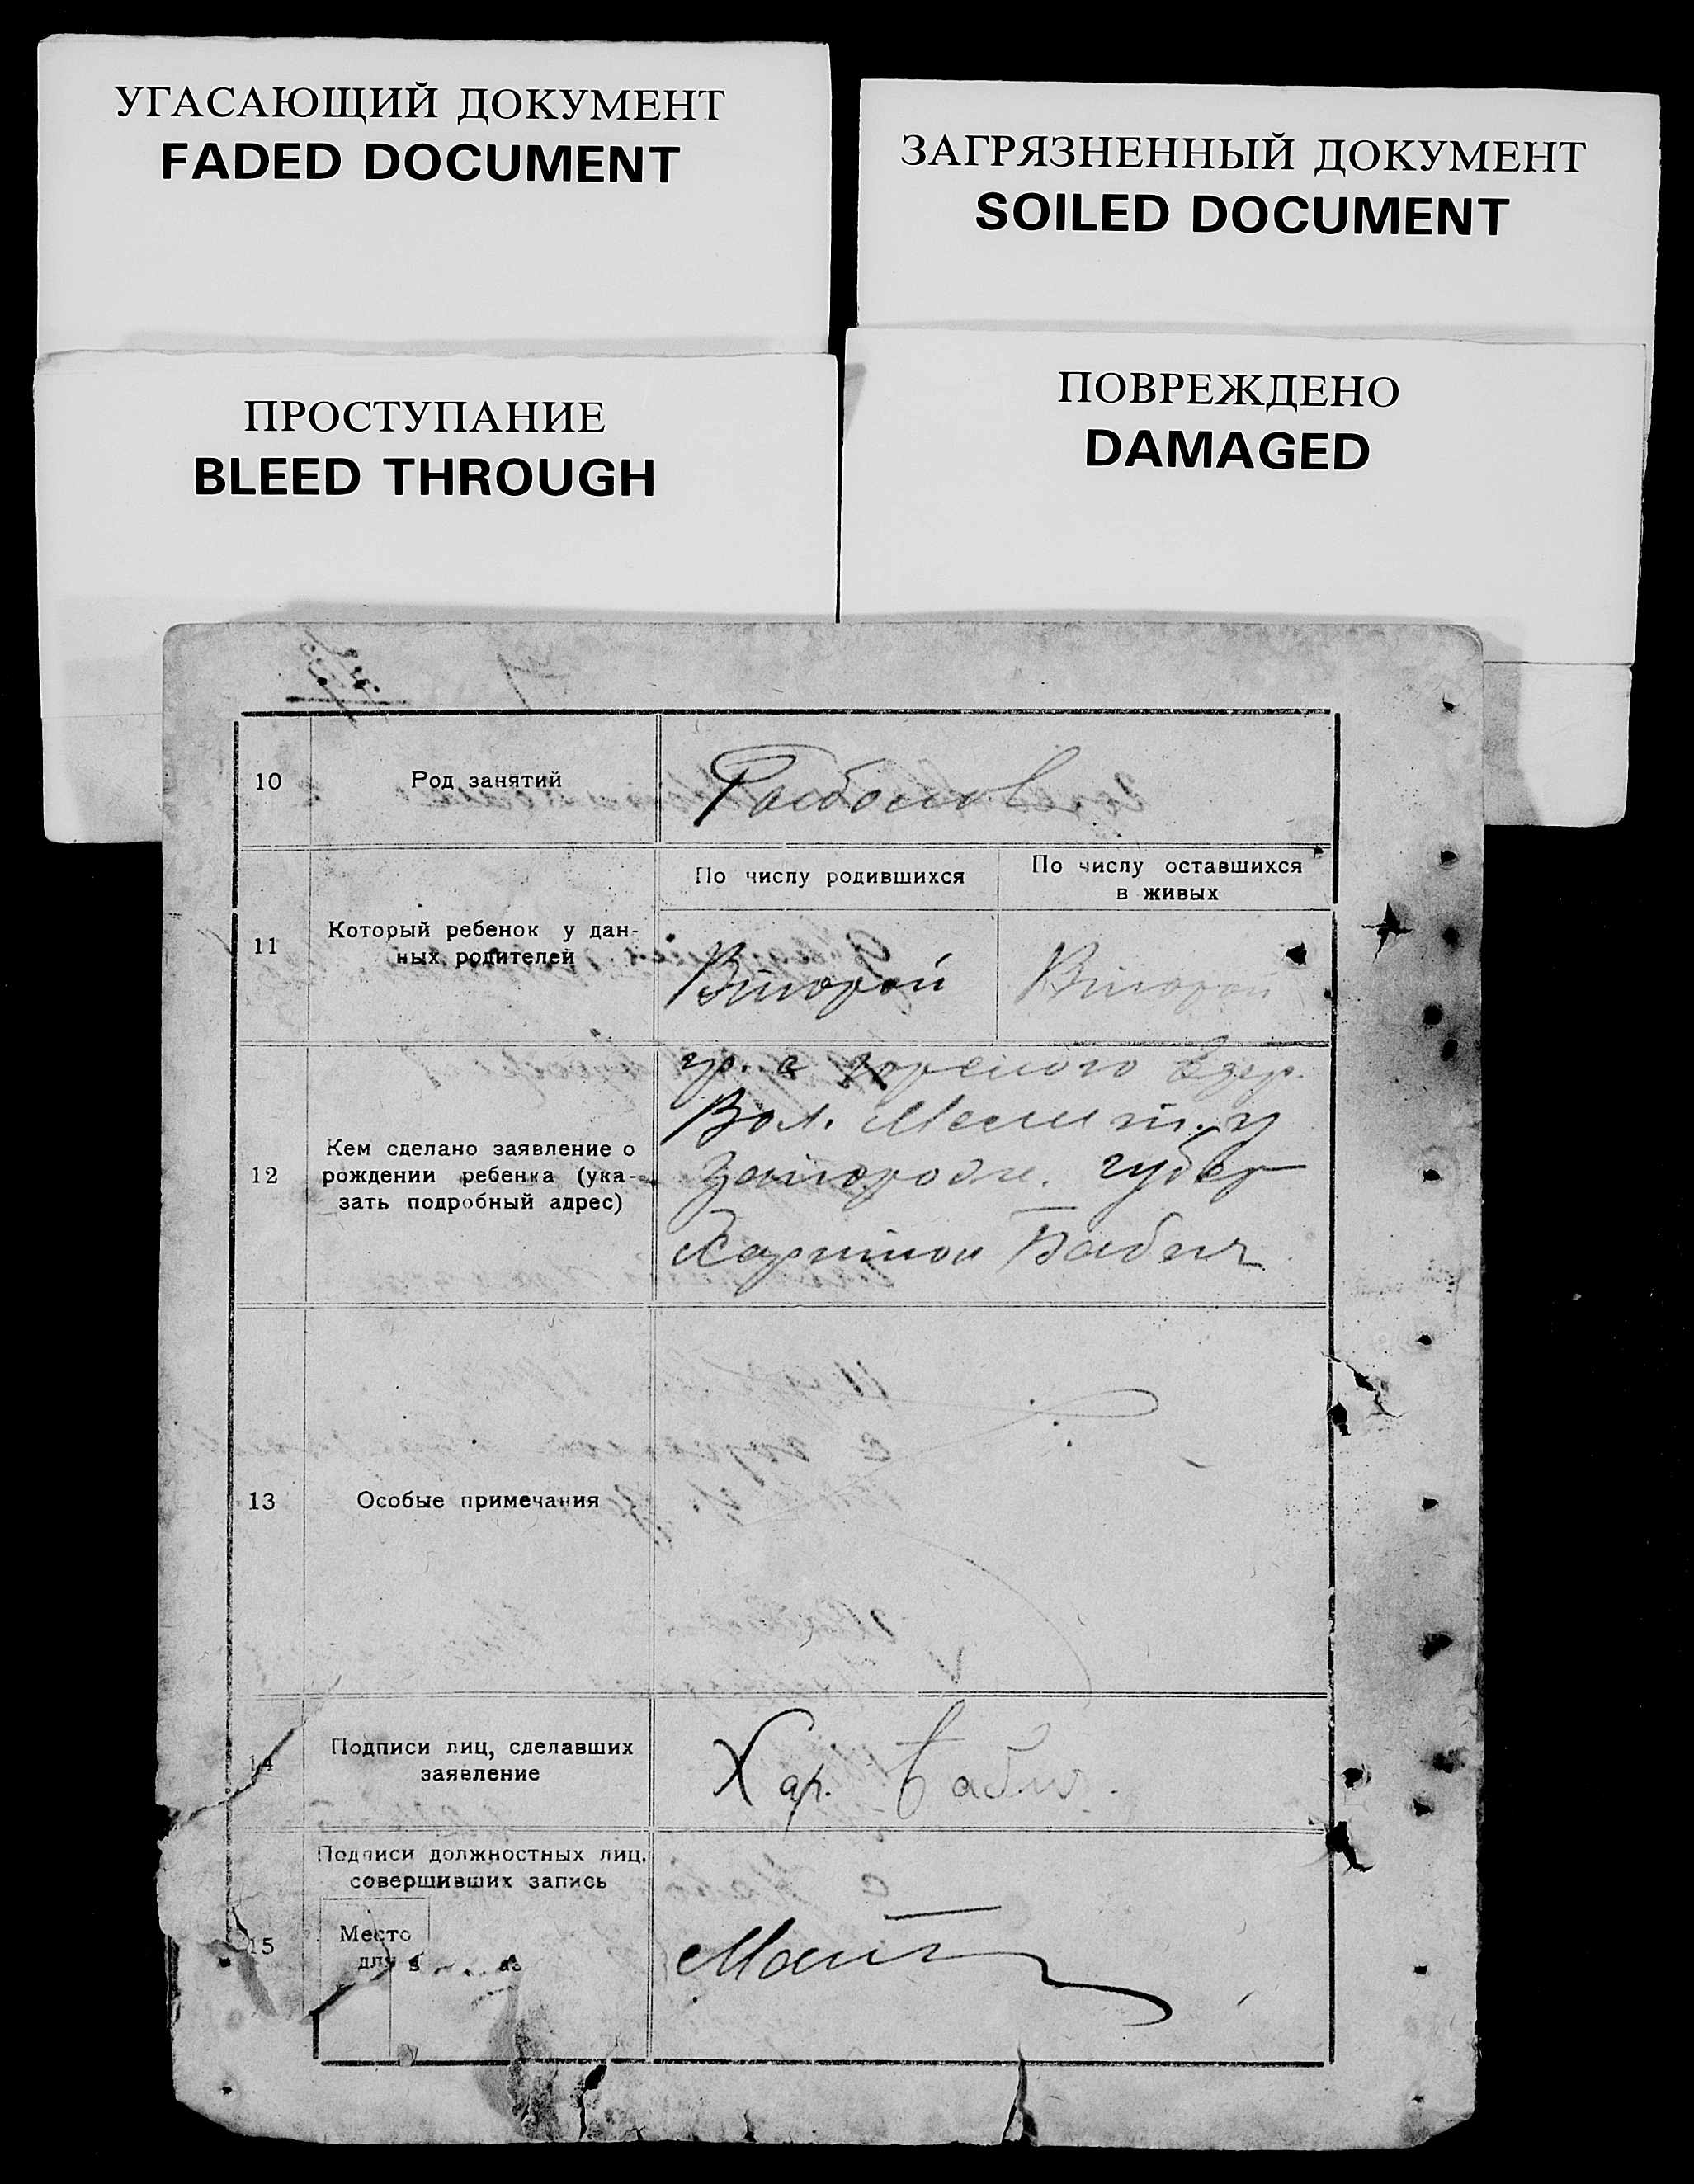 УГАСАЮЩИЙ ДОКУМЕНТ
FADED DOCUMENT
ЗАГРЯЗНЕННЫЙ ДОКУМЕНТ
SOILED DOCUMENT
ПРОСТУПАНИЕ
BLEED THROUGH
ПОВРЕЖДЕНО
DAMAGED
10
Род занятий
11
Который ребенок у дан-
ных родителей
По числу родившихся
По числу оставшихся
в живых
Второй
Второй
12
Кем сделано заявление о
рождении ребенка (ука-
зать подробный адрес)
гр. с
Вол. Мелит. у
губер
Харитон Бабич
13
Особые примечания
14
Подписи лиц, сделавших
заявление
Хар. Бабич.
15
Подписи должностных лиц,
совершивших запись
Место
для